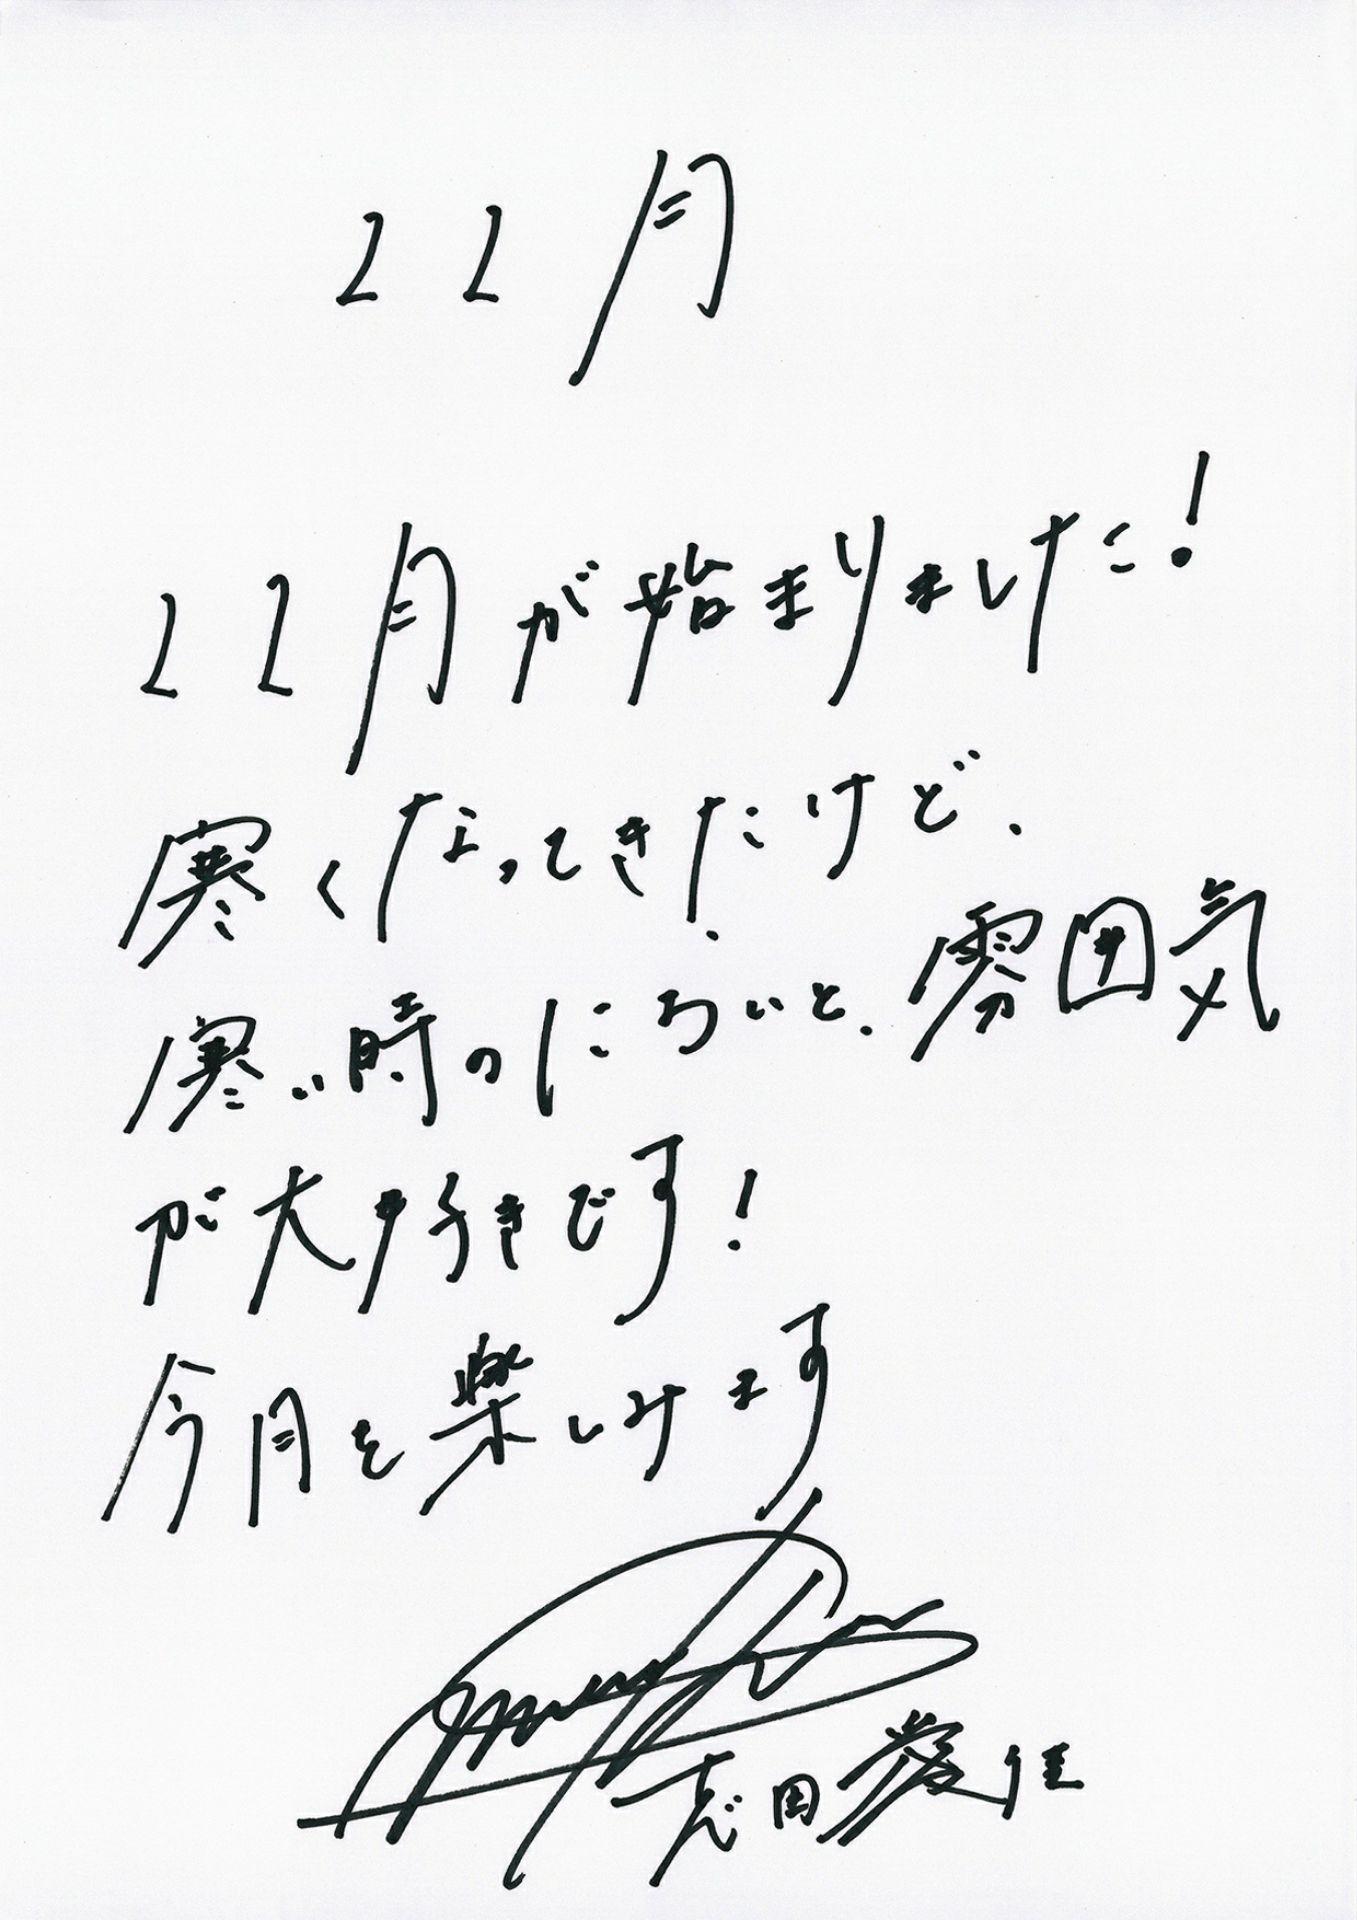 11月
11月が始まりました!
寒くなってきたけど、
寒い時のにおいと、雰囲気
が大好きです!
今月を楽しみます
志田愛佳